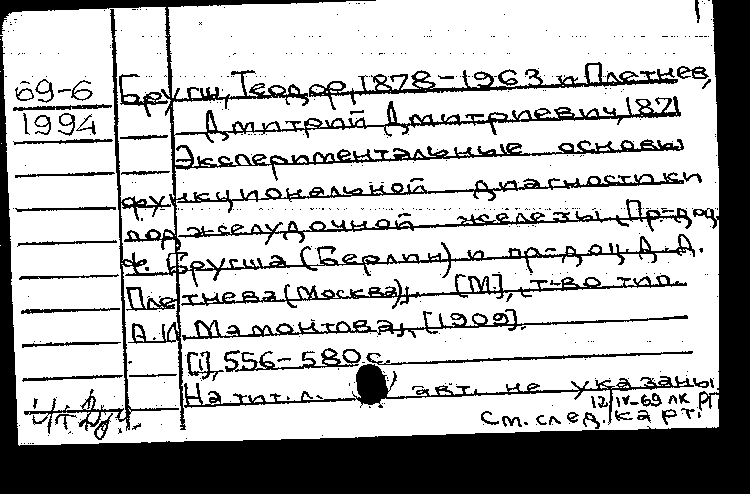 69-6
1994
Бругш, Теодор, 1878-1963 и Плетнев,
Дмитрий Дмитриевич, 1871
Экспериментальные основы
функциональной диагностики
поджелудочной железы [Пр=доц.
Ф. Бругша (Берлин) и пр=доц. Д. Д.
Плетнева (Москва)]. [М], т-во тип.
А.И. Мамонтова, [1909].
[1], 556-580 с.
На тит. л. авт. не указаны
12/IV-69 ЛК РП
См. след. карт.